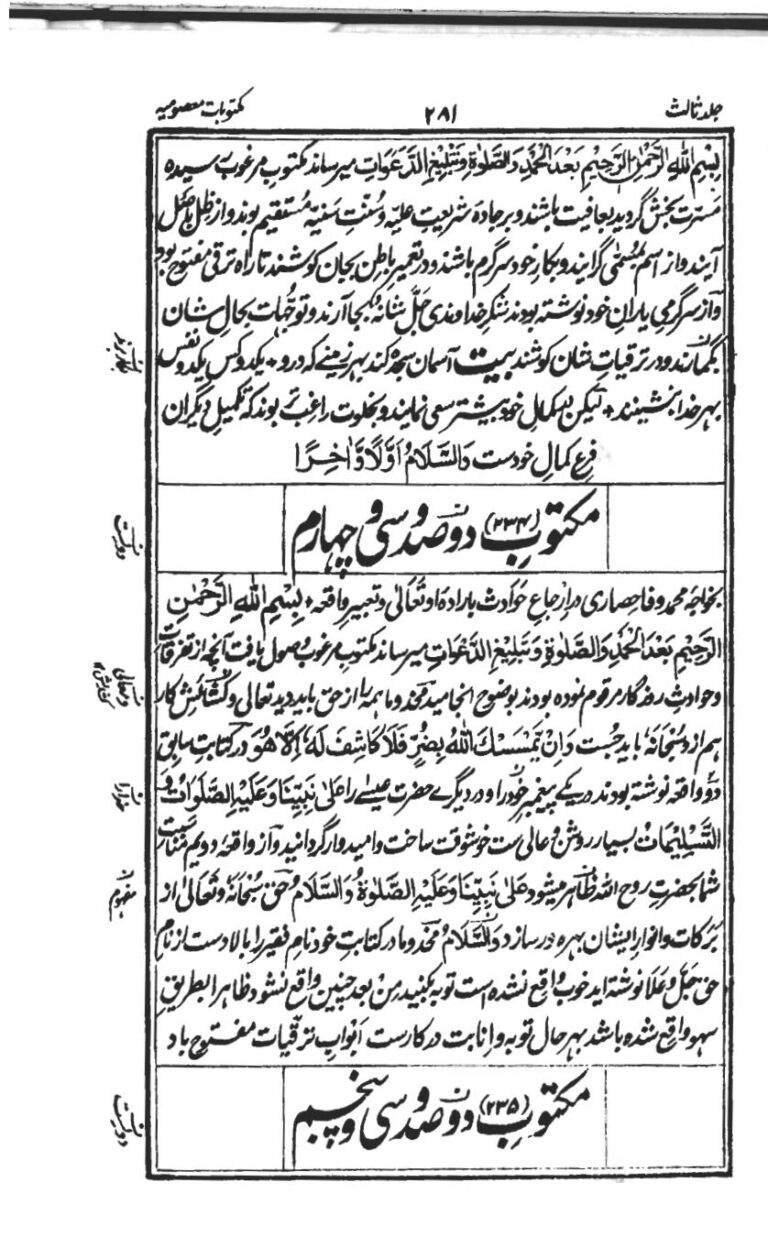 جلد ثالث
۲۸۱
مکتوبات معصومیه
بِسْمِ اللهِ الرَّحْمٰنِ الرَّحِيْمِ بَعْدَ الْحَمْدِ وَالصَّلٰوةِ وَتَبْلِيْغِ الدَّعَوَاتِ میرساند مکتوب مرغوب رسیده
مسرت بخش گردید بعافیت باشند و بر جادهٔ شریعتِ علیّه و سُنّتِ سَنیّه مستقیم بوند و از ظل باصل
آیند و از اسم بمسمّٰی گرایند و بکار خود سرگرم باشند و در تعمیرِ باطن بجان کوشند تا راه ترقی مفتوح بود
و از سرگرمی یارانِ خود نوشته بودند شکر خداوندی جلّ شانهٗ بجا آرند و توجّهات بحالِ شان
بگمارند و در ترقیاتِ شان کوشند بیت آسمان سجده کند بهر زمینے که درو ٭ یکدو کس یکدو نفس
بهر خدا بنشینند ٭ لیکن بکمالِ خود بیشتر سعی نمایند و بخلوت راغب تر بوند که تکمیلِ دیگران
فرع کمالِ خودست وَالسَّلَامُ اَوَّلًا وَّاٰخِرًا
مکتوبِ (۲۳۴) دو صد و سی و چهارم
بخواجه محمد وفا حصاری در ارجاعِ حوادث باراده او تعالٰی و تعبیر واقعه ٭ بِسْمِ اللهِ الرَّحْمٰنِ
الرَّحِيْمِ بَعْدَ الْحَمْدِ وَالصَّلٰوةِ وَتَبْلِيْغِ الدَّعَوَاتِ میرساند مکتوب مرغوب وصول یافت آنچه از تفرقات
و حوادثِ روزگار مرقوم نموده بودند بوضوح انجامید مخدوما همه را از حق باید دید تعالٰی و کشائشِ کار
هم از و سُبحانهٗ باید جُست وَاِنْ يَّمْسَسْكَ اللهُ بِضُرٍّ فَلَا كَاشِفَ لَهٗ اِلَّا هُوَ در کتابتِ سابق
دو واقعه نوشته بودند در یکے پیغمبرِ خود را و در دیگرے حضرت عیسے را عَلٰی نَبِيِّنَا وَعَلَيْهِ الصَّلَوَاتُ وَ
التَّسْلِيْمَاتُ بسیار روشن و عالی ست خوشوقت ساخت و امیدوار گردانید و از واقعهٔ دویم مناسبت
شما بحضرتِ روح الله ظاهر میشود عَلٰی نَبِيِّنَا وَعَلَيْهِ الصَّلٰوةُ وَالسَّلَامُ حق سُبحانهٗ وتعالٰی از
برکات و انوارِ ایشان بهره ور سازد وَالسَّلَامُ مخدوما در کتابتِ خود نامِ فقیر را بالا دست از نامِ
حق جلّ و علا نوشته اید خوب واقع نشده است توبه بکنید مِنْ بعد چنین واقع نشود ظاهرا بطریقِ
سهو واقع شده باشد بهرحال توبه و انابت درکارست ابوابِ ترقیات مفتوح باد
مکتوبِ (۲۳۵) دو صد و سی و پنجم